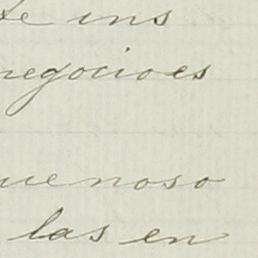 de ins
negocioes
uenoso
las en